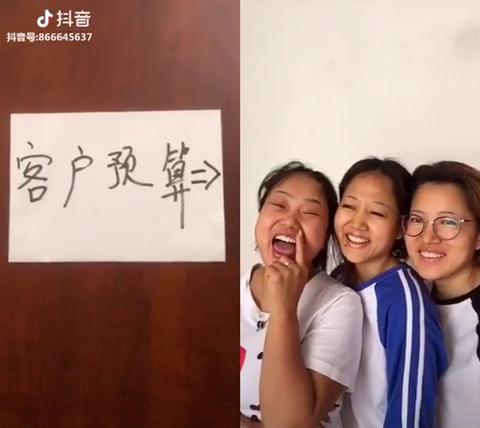 抖音
抖音号:866645637
客户预算⇒